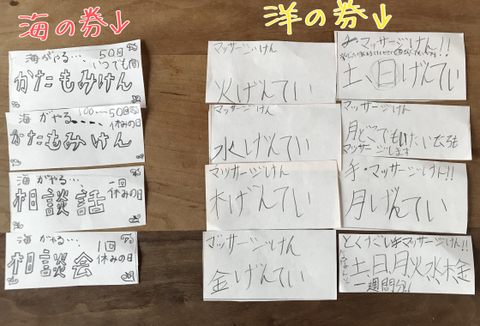 海の券↓
洋の券↓
海がやる… 50日
いつでも
かたもみけん
海がやる… 100……50日
休みの日
かたもみけん
海がやる… 一日
休みの日
相談話
海がやる… 1日
休みの日
相談会
マッサージけん
火げんてい
マッサージけん
水げんてい
マッサージけん
木げんてい
マッサージけん
金げんてい
マッサージけん!!
土、日げんてい
マッサージけん
マッサージします
手・マッサージけん!!
月げんてい
とくべつ マッサージけん!!
土、日、月、火、水、木、金
一週間分!